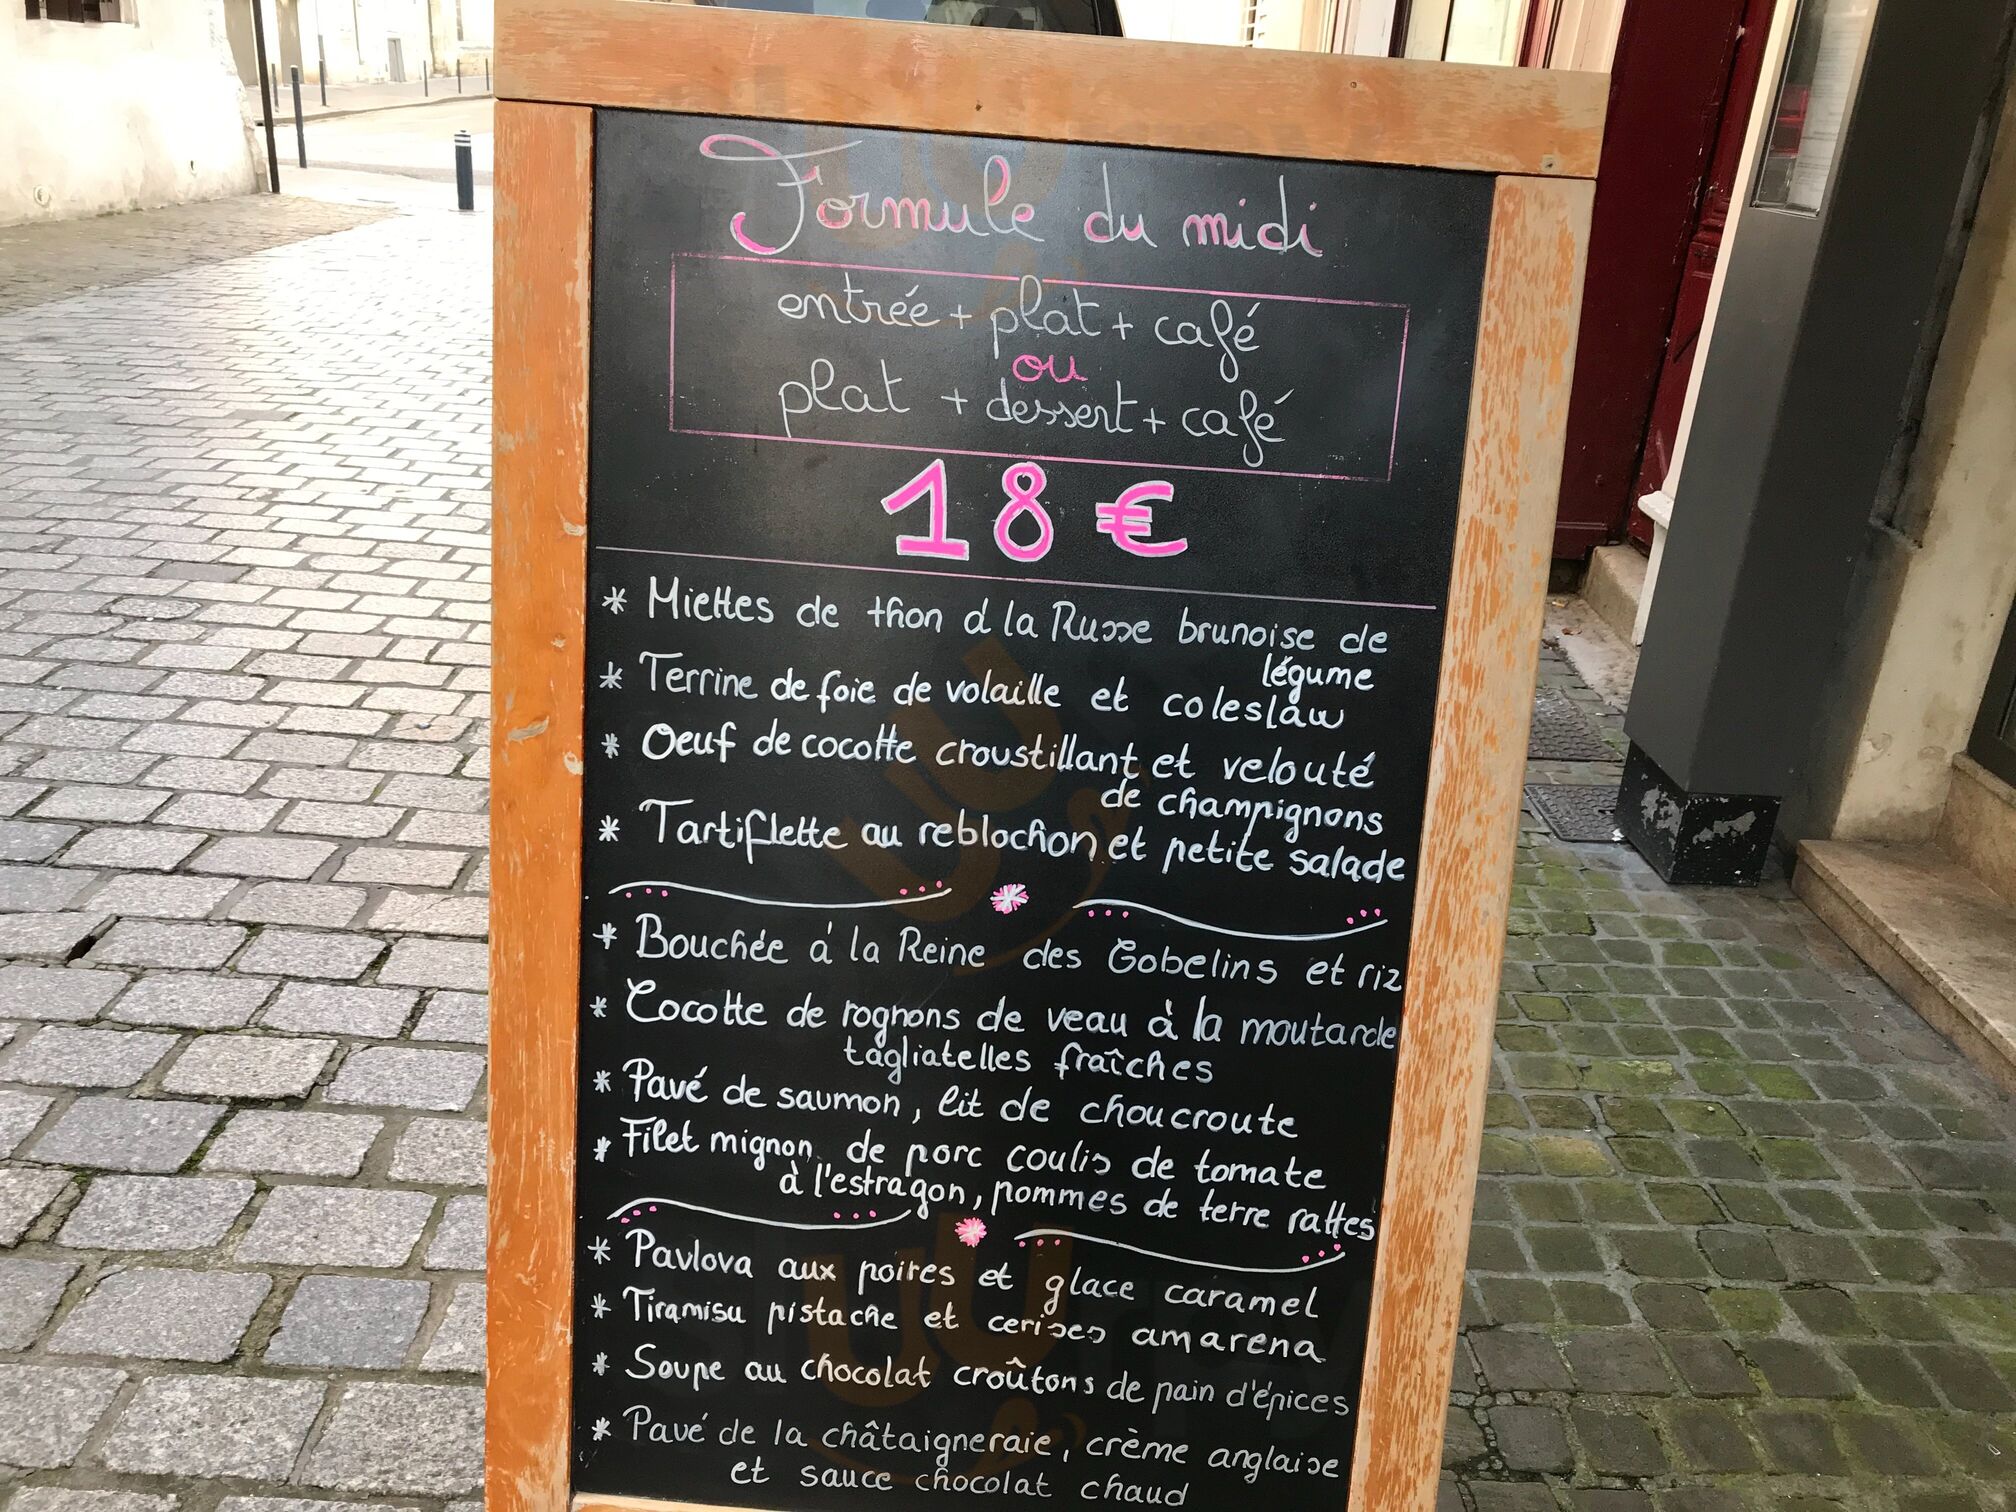 Formule du midi
entrée + plat + café
ou
plat + dessert + café
18 €
* Miettes de thon à la Russe brunoise de
légume
* Terrine de foie de volaille et coleslaw
* Oeuf de cocotte croustillant et velouté
de champignons
* Tartiflette au reblochon et petite salade
* Bouchée à la Reine des Gobelins et riz
* Cocotte de rognons de veau à la moutarde
tagliatelles fraîches
* Pavé de saumon, lit de choucroute
* Filet mignon de porc coulis de tomate
à l'estragon, pommes de terre rattes
* Pavlova aux poires et glace caramel
* Tiramisu pistache et cerises amarena
* Soupe au chocolat croûtons de pain d'épices
* Pavé de la châtaigneraie, crème anglaise
et sauce chocolat chaud